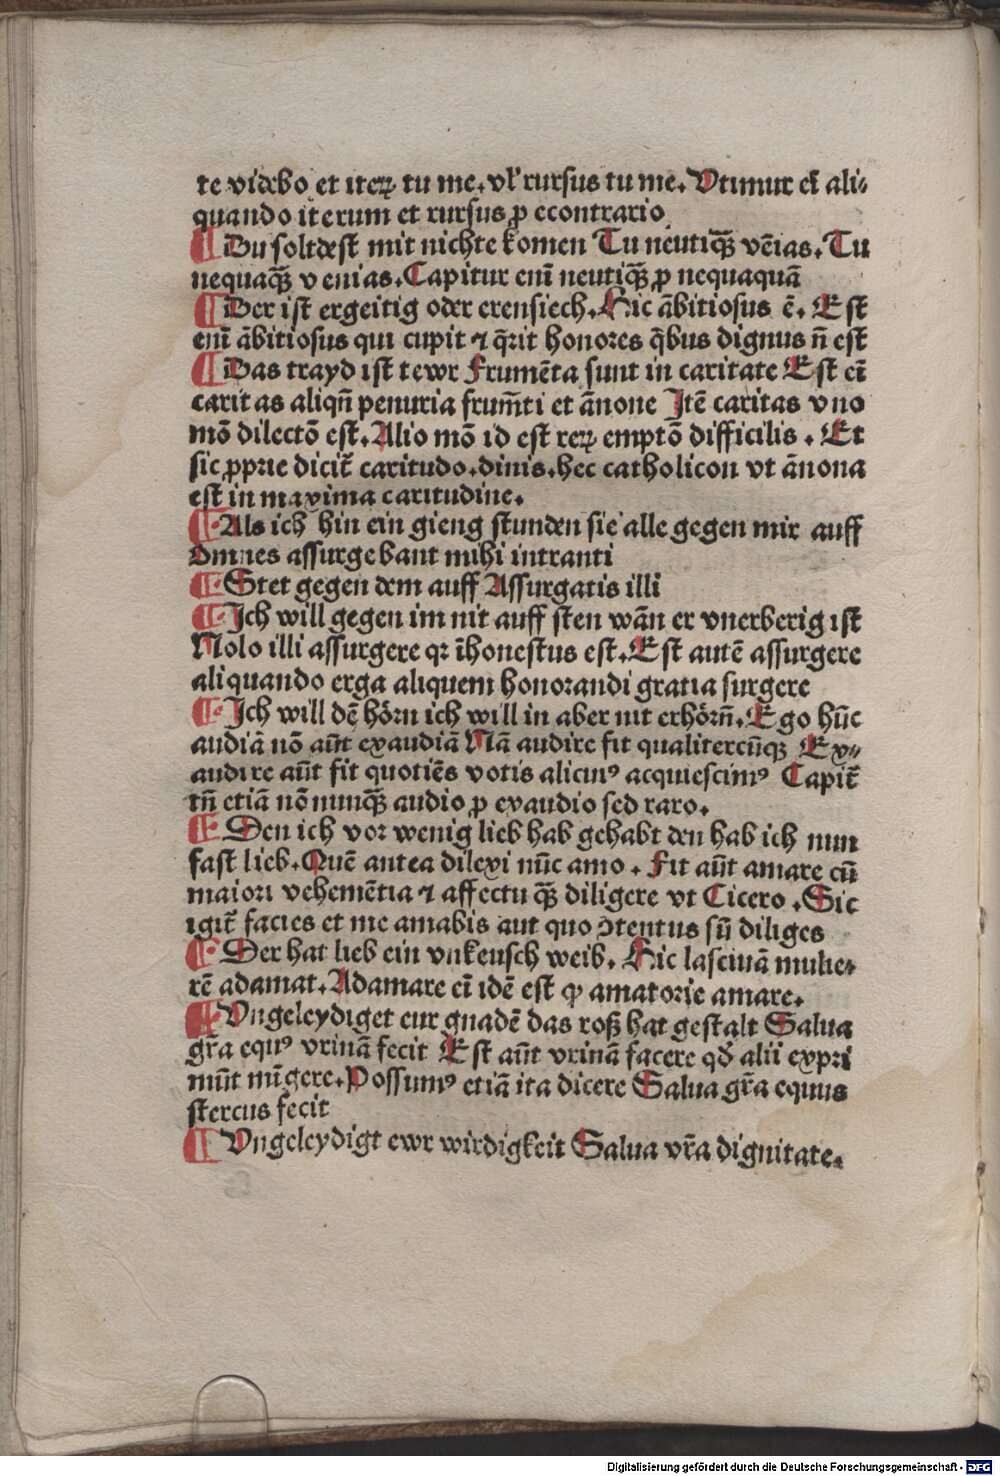 te videbo et iterꝝ tu me. vl̕ rursus tu me. Utimur et̄ ali⸗
quando iterum et rursus ꝓ econtrario
¶ Du soltdest mit nichte komen Tu neutiqꝫ̄ vēias. Tu
nequaqꝫ̄ venias. Capitur enī neutiqꝫ̄ ꝓ nequaquā
¶ Der ist ergeitig oder erensiech. Hic ābitiosus ē. Est
enī ābitiosus qui cupit ⁊ q̄rit honores q̄bus dignus n̄ est
¶ Das trayd ist tewr Frumēta sunt in caritate Est eī
caritas aliqn̄ penuria frum̄ti et ānone Jtē caritas vno
mō dilectō est. Alio mō id est rerꝝ emptō difficilis. Et
sic ꝓprie dicit̄ caritudo. dinis. hec catholicon vt ānona
est in maxima caritudine.
¶ Als ich hin ein gieng stunden sie alle gegen mir auff
Omnes assurgebant mihi intranti
¶ Stet gegen dem auff Assurgatis illi
¶ Jch will gegen im nit auff sten wān er vnerberig ist
Nolo illi assurgere qꝛ īhonestus est. Est autē assurgere
aliquando erga aliquem honorandi gratia surgere
¶ Jch will dē hörn ich will in aber nit erhörn̄. Ego hūc
audiā nō aūt exaudiā Nā audire fit qualitercūqꝫ Ex⸗
audire aūt fit quotiēs votis alicuiꝰ acquiescimꝰ Capit̄
tn̄ etiā nōnunqꝫ̄ audio ꝓ exaudio sed raro.
¶ Den ich vor wenig lieb hab gehabt den hab ich nun
fast lieb. Quē antea dilexi nūc amo. Fit aūt amare cū
maiori vehemētia ⁊ affectu qꝫ̄ diligere vt Cicero. Sic
igit̄ facies et me amabis aut quo ↄtentus sū diliges
¶ Der hat lieb ein vnkeusch weib. Hic lasciuā mulie⸗
rē adamat. Adamare eī idē est ꝙ amatorie amare.
¶ Ungeleydiget eur gnadē das roß hat gestalt Salua
gr̄a equꝰ vrinā fecit Est aūt vrinā facere qđ alii expri
mūt mīgere. Possumꝰ etiā ita dicere Salua gr̄a equus
stercus fecit
¶ Ungeleydigt ewr wirdigkeit Salua vr̄a dignitate.
Digitalisierung gefördert durch die Deutsche Forschungsgemeinschaft - DFG